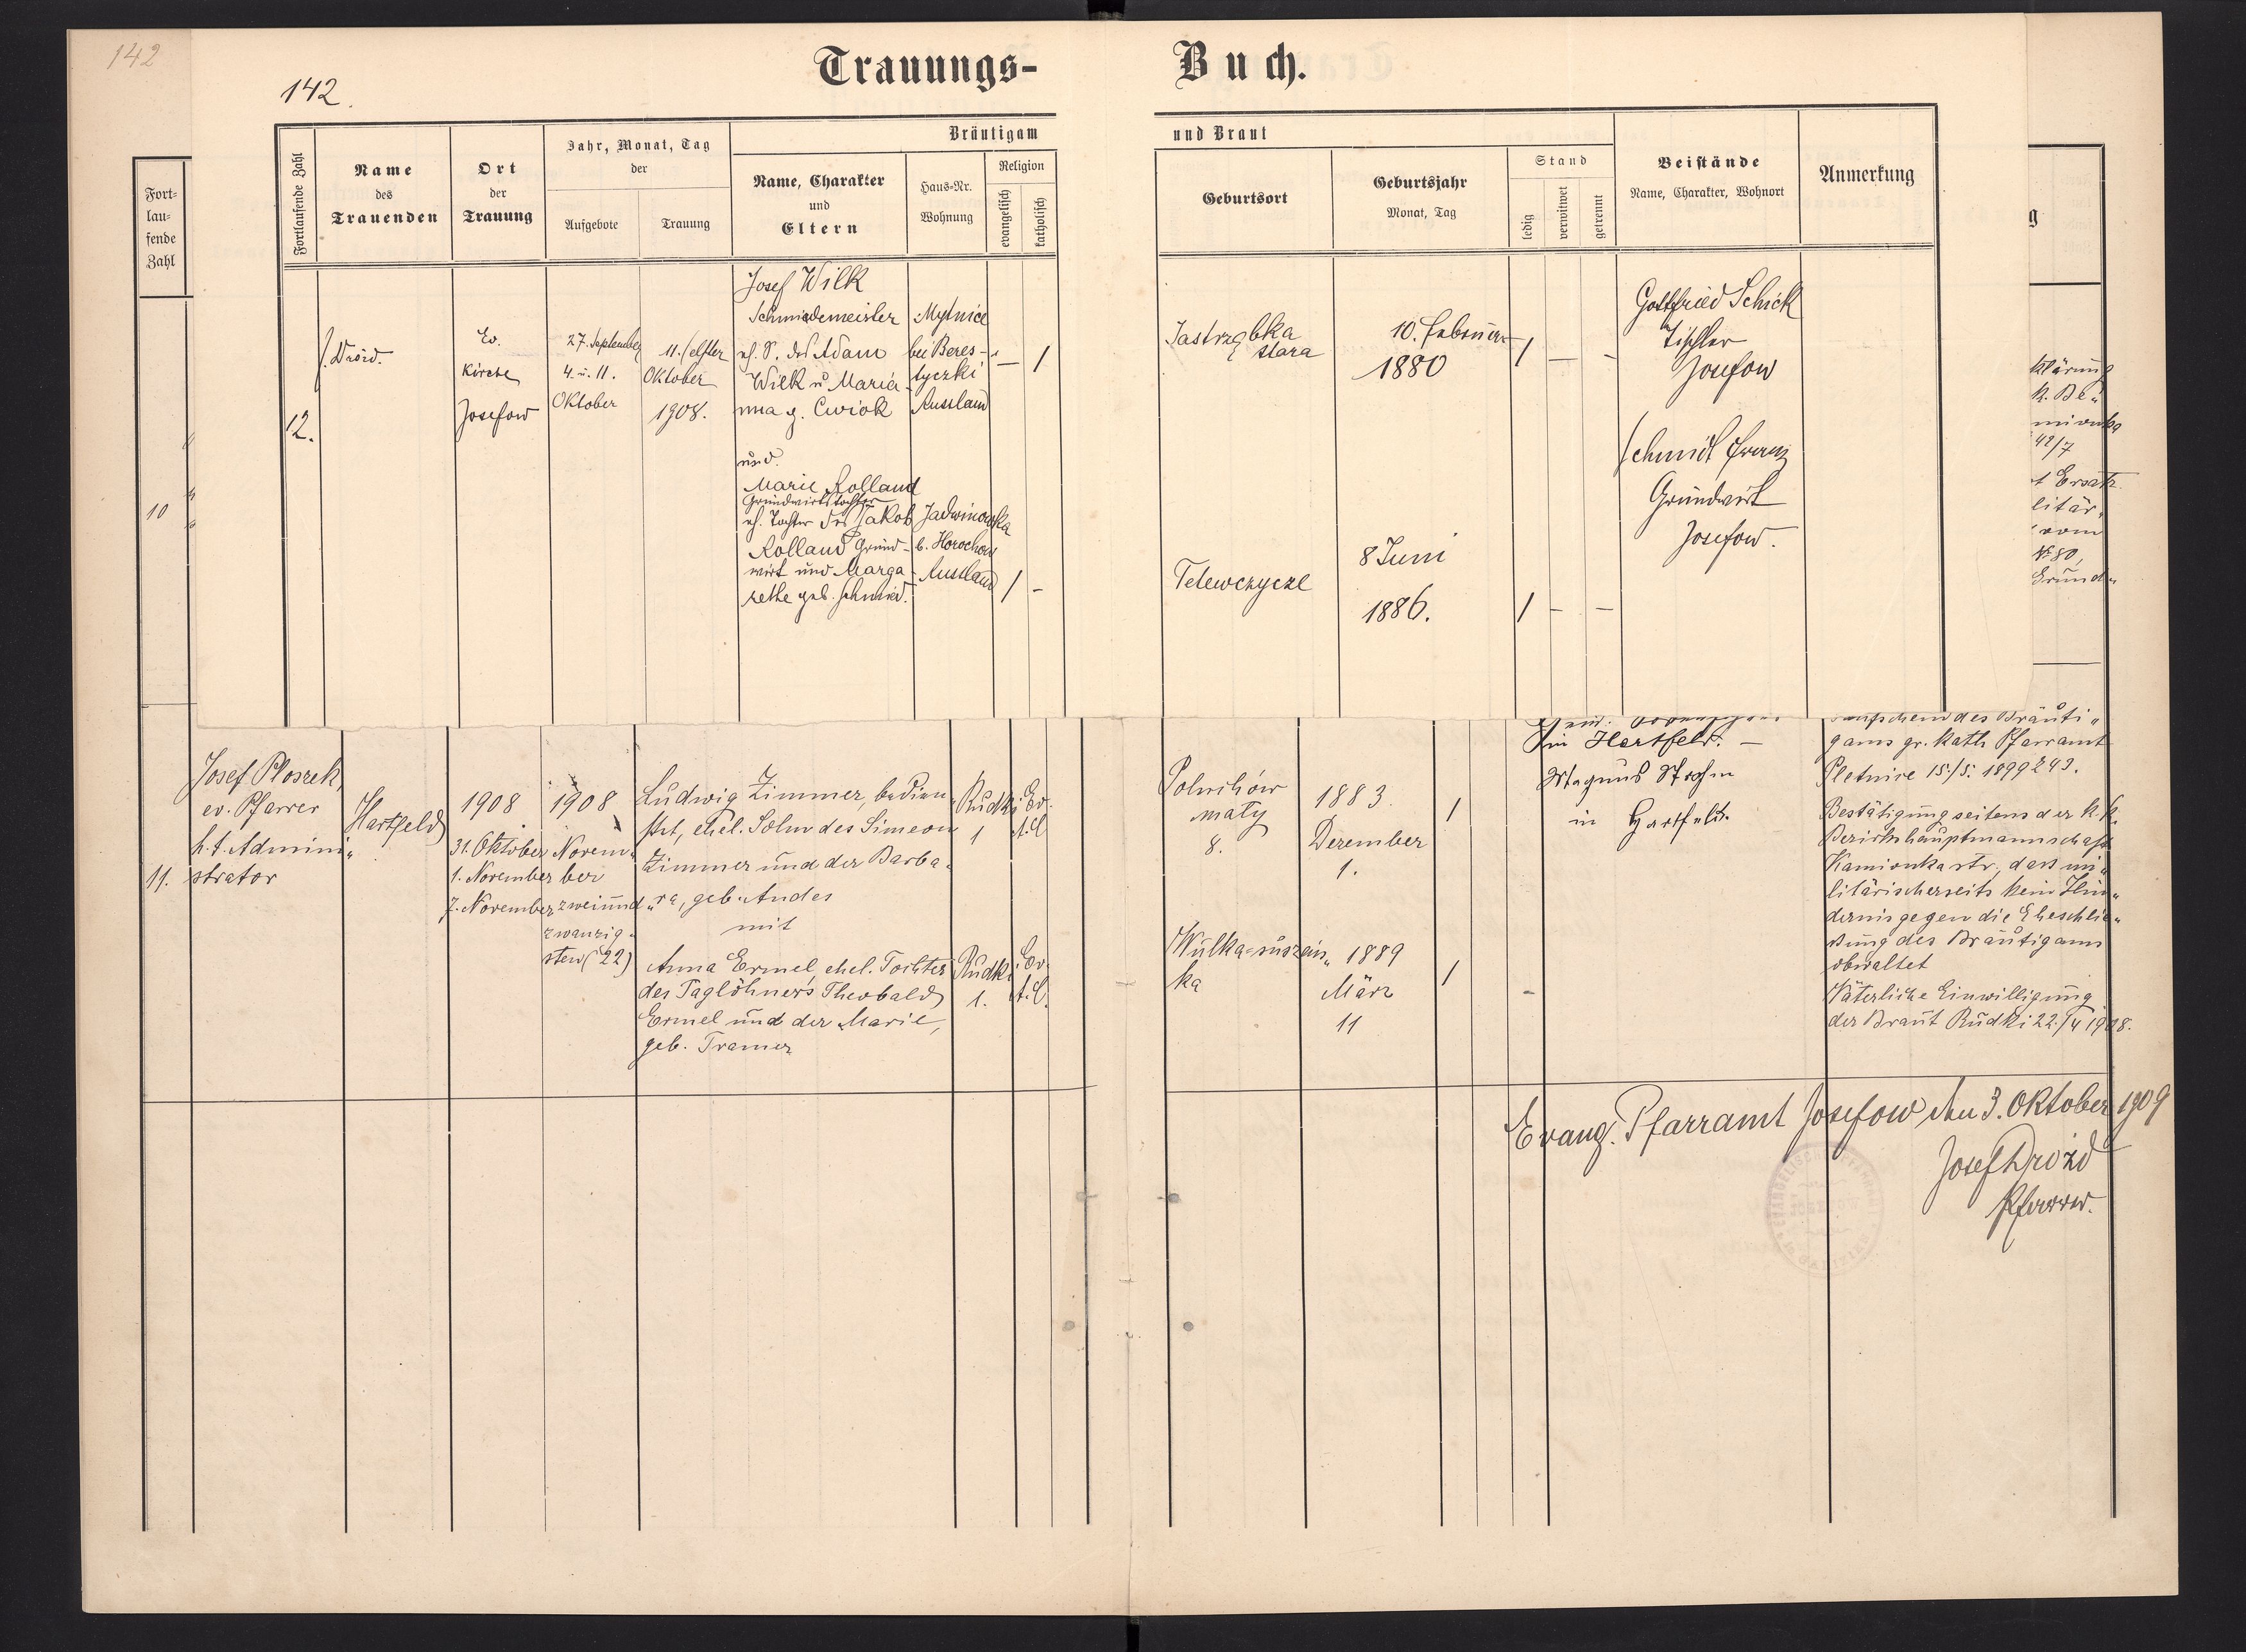 142
142.
Trauungs- Buch.
Fort-
lau-
fende
Zahl
Fortlaufende Zahl
Name
des
Trauenden
Ort
der
Trauung
Jahr, Monat, Tag
der
Aufgebote
Trauung
Bräutigam
Name, Charakter
und
Eltern
Haus-Nr.
Wohnung
Religion
evangelisch
katholisch
und Braut
Geburtsort
Geburtsjahr
Monat, Tag
Stand
ledig
verwitwet
getrennt
Beistände
Name, Charakter, Wohnort
Anmerkung
g
12.
J. Droid.
Ev.
Kirche
Josefow
27. September
4. u. 11.
Oktober
11. (elfter
Oktober
1908.
Josef Wilk
Schmiedemeister
eh. S. des Adam
Wilk u Maria-
nna g. Cwiok
Mytnice
bei Beres-
tyczki
Russland
— /
Jastrząbka
stara
10. Februar
1880
/ — -
Gottfried Schick
Tischler
Josefow
und
Marie Rolland
Grundwirtstochter
eh. Tochter des Jakob
Rolland Grund-
wirt und Marga-
rethe geb. Schmied.
Jadwinowka
b. Horochow
Russland
/ -
Telewczycze
8 Juni
1886.
/ — —
Schmidt Franz
Grundwirt
Josefow.
10
klärung
k. Be„
mionka
42/7
t Ersatz
litär„
vom
№ 80,
Grund„
11.
Josef Ploszek,
ev. Pfarrer
h.t. Admini„
strator
Hartfeld
1908
31. Oktober
1. November
7. November
1908
Novem„
ber
zweiund„
zwanzig„
sten (22)
Ludwig Zimmer, bedien„
stet, ehel. Sohn des Simeon
Zimmer und der Barba„
„ra, geb. Andes
mit
Anna Ermel, ehel. Tochter
des Taglöhners Theobald
Ermel und der Marie,
geb. Tramer
Rudki
1
Ev.
A.C.
Rudki
1.
Ev.
A.C.
Polnichów
mały
8.
1883.
Dezember
1.
/
Wulka-suszein„
ka
1889
März
11
/
-
in Hartfeld. —
Magnus Strohm
in Hartfeld.
des Bräuti„
gams gr. kath Pfarramt
Pletnice 15./5. 1899 Z 43.
Bestätigung seitens der k.k.
Bezirkshauptmannschaft
Kamionka str., dass mi„
litärischerseits kein Hin„
dernis gegen die Eheschlie„
ßung des Bräutigams
obwaltet
Väterliche Einwilligung
der Braut Rudki 22./4 1908.
Evang. Pfarramt Josefow den 3. Oktober 1909
Josef Drozd
Pfarrer.